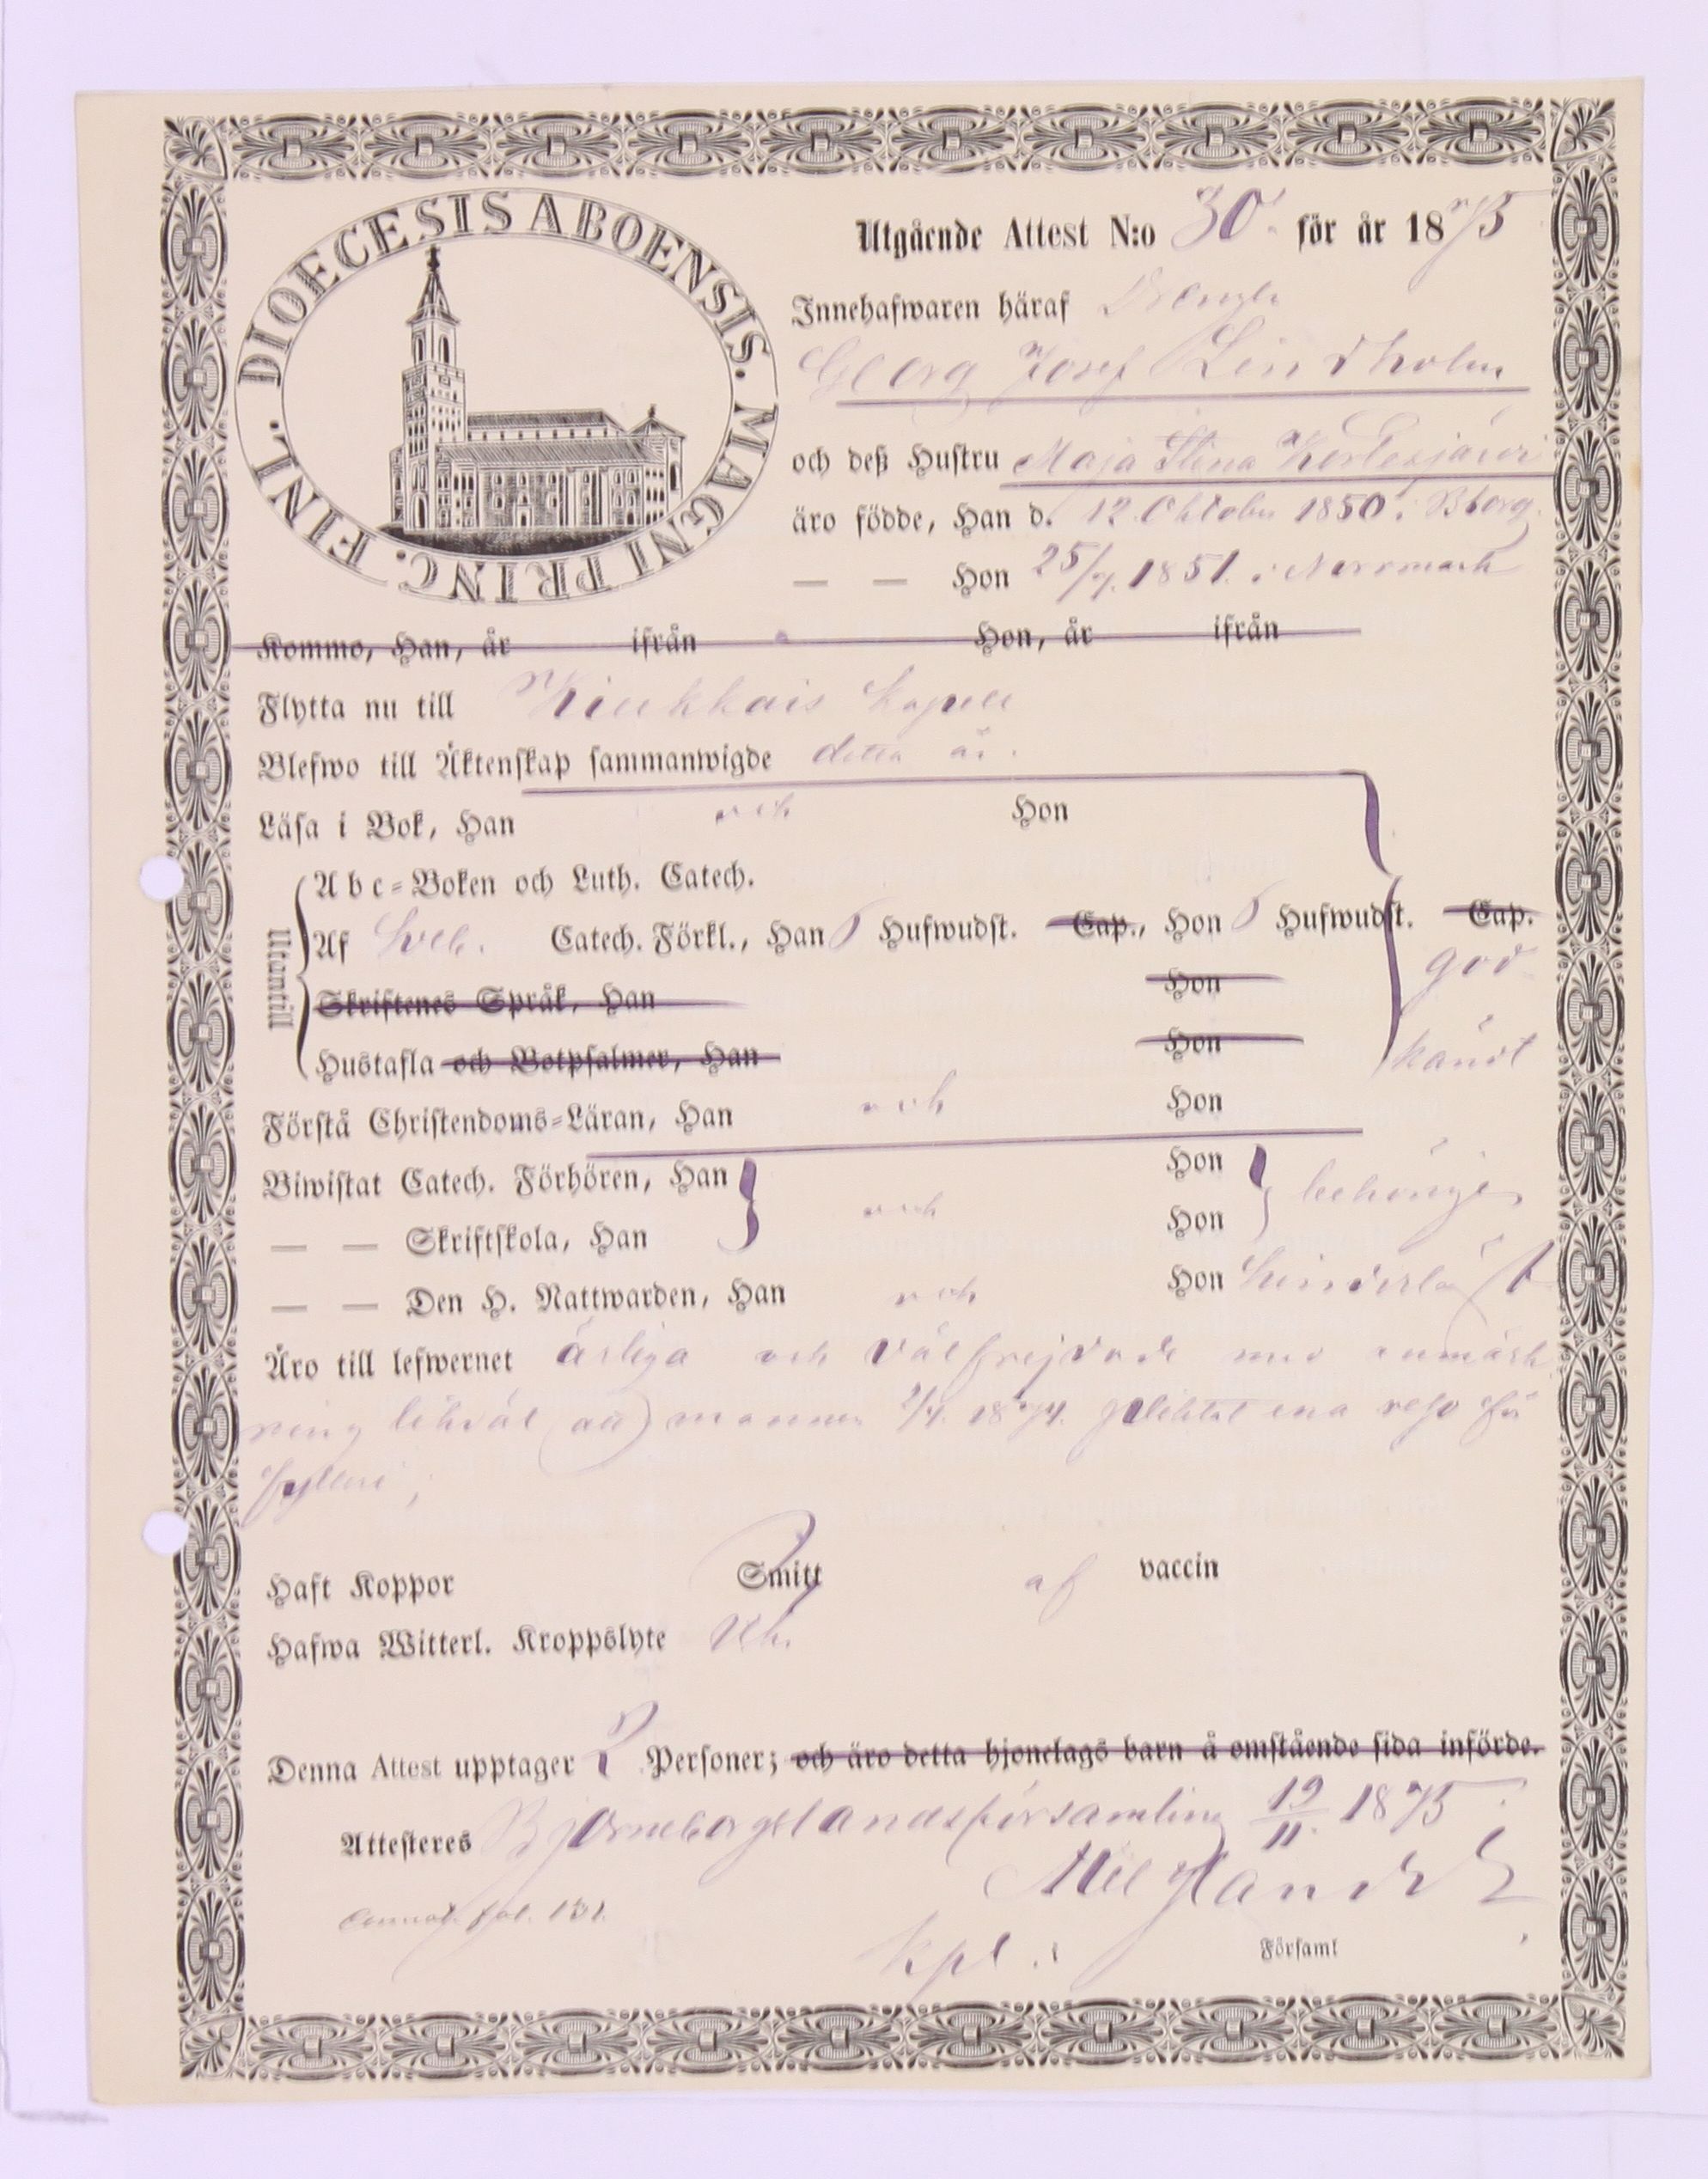 DIOECESIS ABOENSIS. MAGNI PRINC. FINL.
Utgående Attest N:o 30. för år 1875
Innehafwaren häraf Drengen
Georg Josef Lindholm
och deß Hustru Maja Stina
äro födde, Han d. 12 Oktober 1850 i Bborg.
— — Hon 25/7. 1851. i Norrmark
Kommo, Han, år ifrån Hon, år ifrån
Flytta nu till Kiukkais kapell
Blefwo till Äktenskap sammanwigde detta år.
Läsa i Bok, Han och Hon
Utantill
Abc-Boken och Luth. Catech.
Af Sveb. Catech. Förkl., Han 5 Hufwudst. Cap., Hon 5 Hufwudst. Cap.
Skriftenes Språk, Han Hon
Hustafla och Botpsalmer, Han Hon
god-
kändt
Förstå Christendoms-Läran, Han och Hon
Biwistat Catech. Förhören, Han Hon
— — Skriftskola, Han och Hon behörigen
— — Den H. Nattwarden, Han och Hon hinderlöst
Äro till lefwernet ärliga och välfrejdade med anmärk
ning likväl att mannen 1874. pliktat ena resa för
fylleri;
Haft Koppor Smitt af vaccin
Hafwa Witterl. Kroppslyte
Denna Attest upptager 2 Personer; och äro detta hjonelags barn å omstående sida införde.
Attesteras Björneborgs landsförsamling 19/11. 1875.
fol. 131.
kpl. i Församl